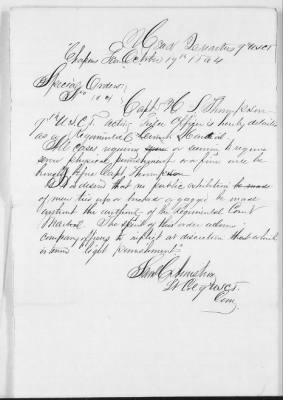 Head Quarters 9" USCT
Chapins Farm October 19th 1864
Special Orders
No
Capt H S Thompson
9" USCT acting Field Officer is hereby detailed
as a Regimental Court Martial
All cases requiring or seeming to require
severe physical punishment or a fine will be
brought before Capt Thompson
It is desired that no public exhibition be made
of men tied up or bucked or gagged be made
without the sentence of the Regimental Court
Martial. The spirit of this order allows
company officers to inflict at discretion that which
is termed "light punishment"
Lt Col 9" USCT
Com'g